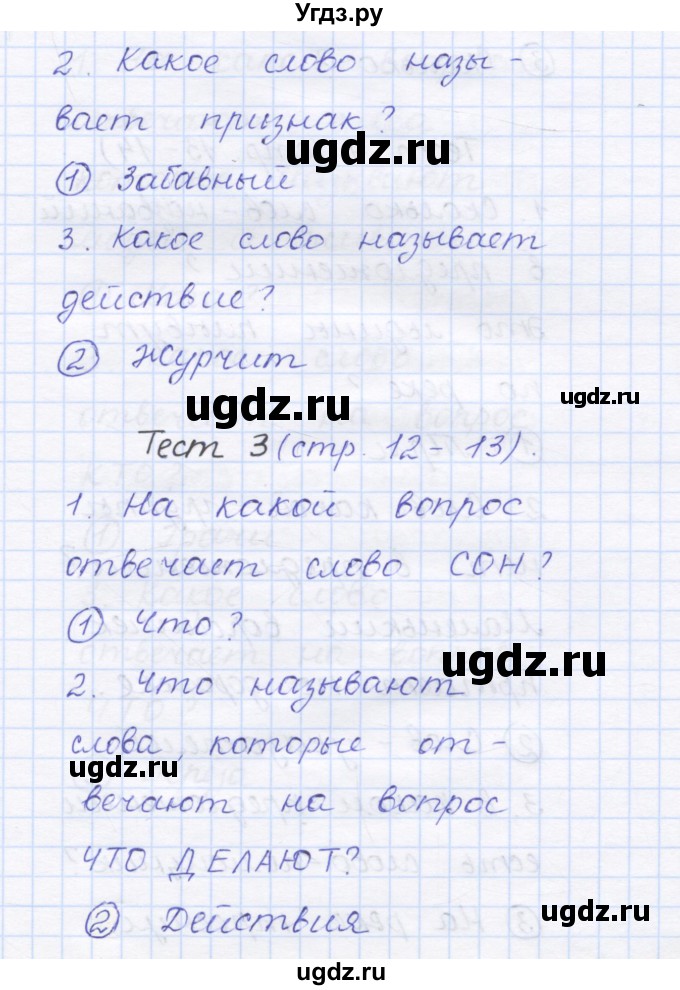 Угдз.ру
2. Какое слово назы-
вает признак?
ugdz.ru
① Забавный
3. Какое слово называет
действие?
ugdz.ru
② Журчит
ugdz.ru
Тест 3 (стр. 12-13).
1. На какой вопрос
отвечает слово СОН?
① Что?
ugdz.ru
2. Что называют
слова которые от-
ugdz.ru
вечают на вопрос
ЧТО ДЕЛАЮТ?
② Действия
ugdz.ru
ugdz.ru